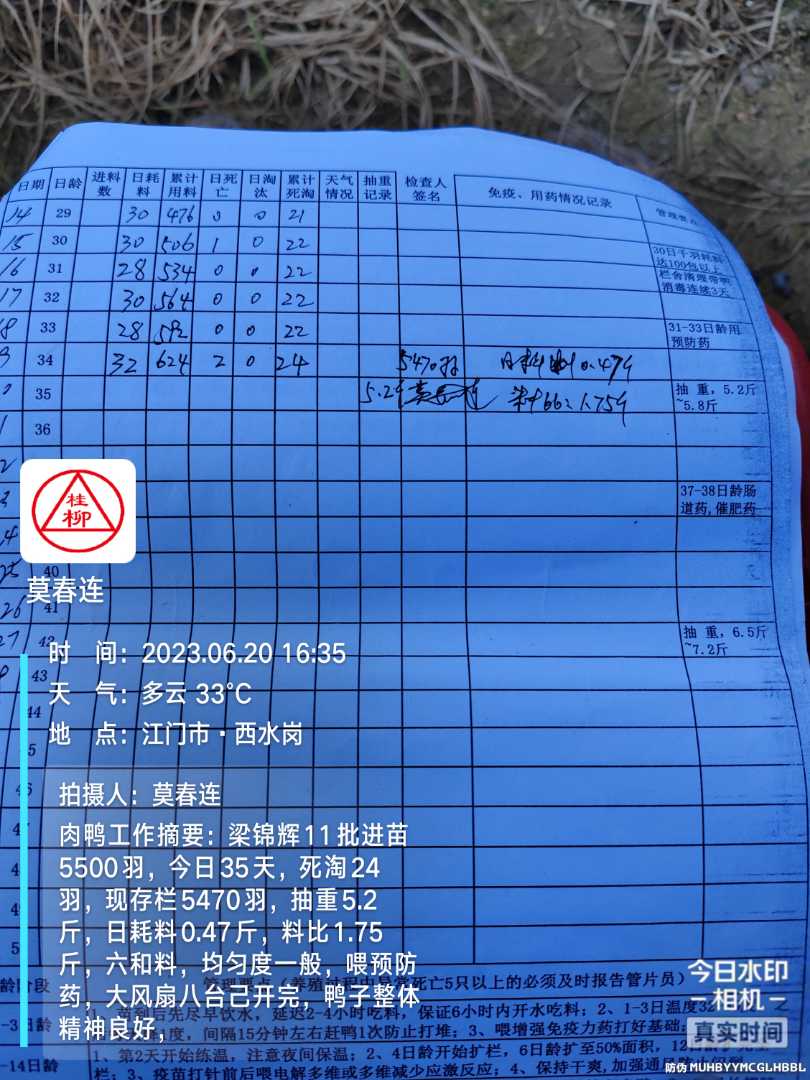 日期 日龄 进料数 日耗料 累计用料 日死亡 日淘汰 累计死淘 天气情况 抽重记录 检查人签名 免疫、用药情况记录
14 29 30 476 0 0 21
15 30 30 506 1 0 22 30日千羽耗料达100包以上
16 31 28 534 0 0 22 消毒连续3天
17 32 30 564 0 0 22
8 33 28 592 0 0 22 31-33日龄用预防药
34 32 624 2 0 24 5470羽 0.47斤
35 5.2斤 1.75斤 抽重，5.2斤~5.8斤
36
37-38日龄肠道药,催肥药
40
26 41
27 42 抽重，6.5斤~7.2斤
43
44
桂柳
莫春连
时 间：2023.06.20 16:35
天 气：多云 33℃
地 点：江门市·西水岗
拍摄人：莫春连
肉鸭工作摘要：梁锦辉11批进苗
5500羽，今日35天，死淘24
羽，现存栏5470羽，抽重5.2
斤，日耗料0.47斤，料比1.75
斤，六和料，均匀度一般，喂预防
药，大风扇八台己开完，鸭子整体
精神良好，
死亡5只以上的必须及时报告管片员）
苗到后先尽早饮水，延迟2-4小时吃料，保证6小时内开水吃料；2、1-3日温度
度，间隔15分钟左右赶鸭1次防止打堆；3、喂增强免疫力药打好基础；
-14日龄 1、第2天开始练温，注意夜间保温；2、4日龄开始扩栏，6日龄扩至50%面积，
栏；3、疫苗打针前后喂电解多维或多维减少应激反应；4、保持干爽,加强通风
今日水印
相机
真实时间
防伪 MUHBYYMCGLHBBL